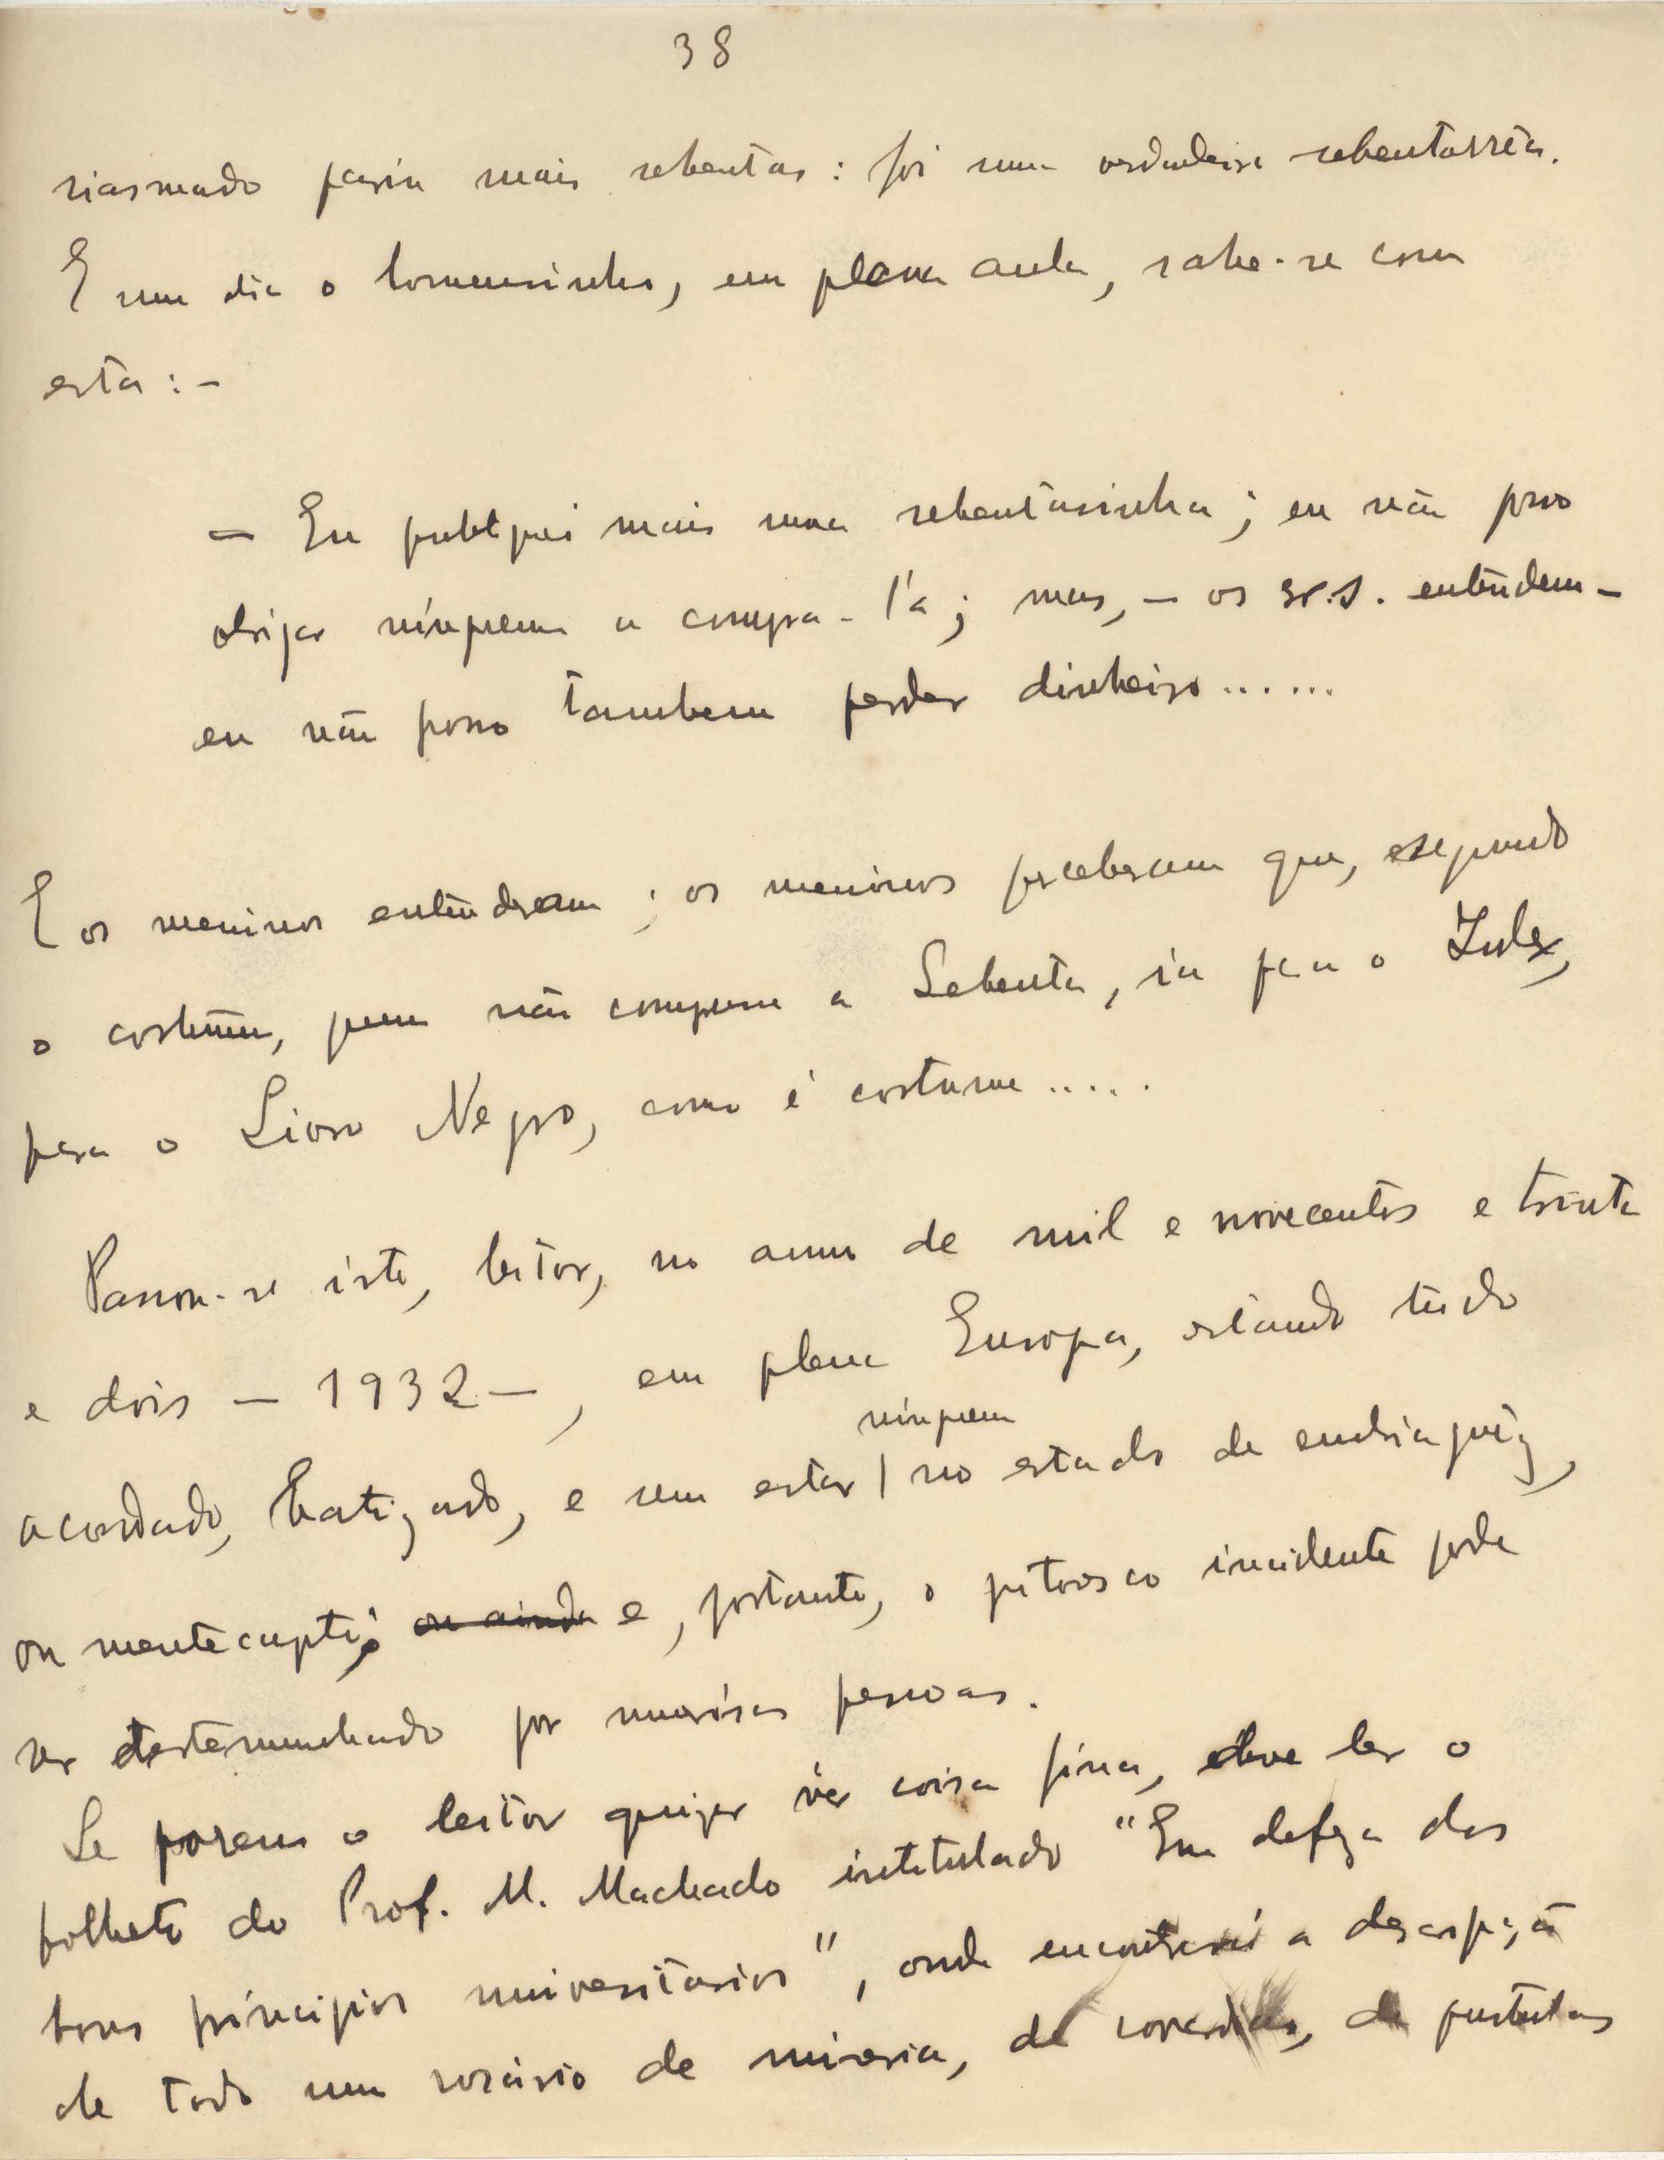 38
siasmado paria mais sebentas: foi uma verdadeira sebentorréa.
E um dia o homensinho, em plena aula, sahe-se com
esta: -
- Eu publiquei mais uma sebentasinha; eu não posso
obrigar ninguem a compra-l'a; mas, - os sr.s. entendem -
eu não posso tambem perder dinheiro......
E os meninos entenderam; os meninos perceberam que, segundo
o costume, quem não comprasse a Sebenta, ia para o Index,
para o Livro Negro, como é costume.....
Passou-se isto, leitor, no anno de mil e novecentos e trinta
e dois - 1932 -, em plena Europa, estando tudo
ninguem
acordado, batizado, e sem estar | no estado de embriaguêz,
ou mentecapto; ou ainda e, portanto, o pitoresco incidente pode
ser testemunhado por muitas pessoas.
Se porem o leitor quizer vêr coisa fina, deve ler o
folheto do Prof. M. Machado intitulado "Em defeza dos
bons principios universitarios", onde encontrará a descripção
de todo um rosário de miseria, de cobardias, de pustulas